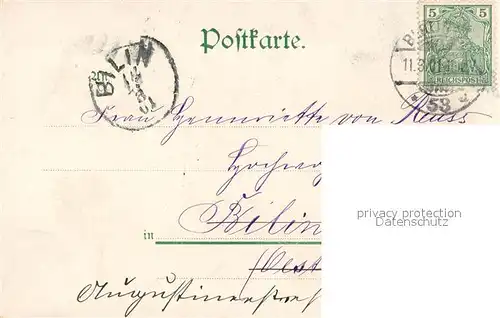 Postkarte.
5 5
REICHSPOST
11.3.01
53
BILIN
Frau Henriette von Reuss
Hochwo
Bilin
in
(Oest
Augustinerstraß
privacy protection
Datenschutz